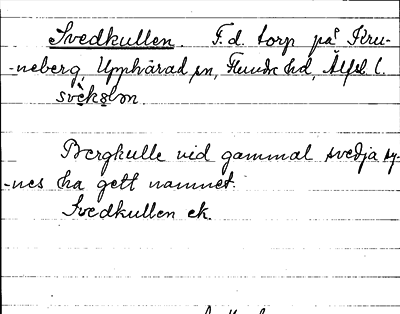 Svedkullen. F.d. torp på Kru-
-neberg, Upphärad sn, Flundre hd, Älfsb. l.

Bergkulle vid gammal svedja sy-
-nes ha gett namnet.
Svedkullen ek.